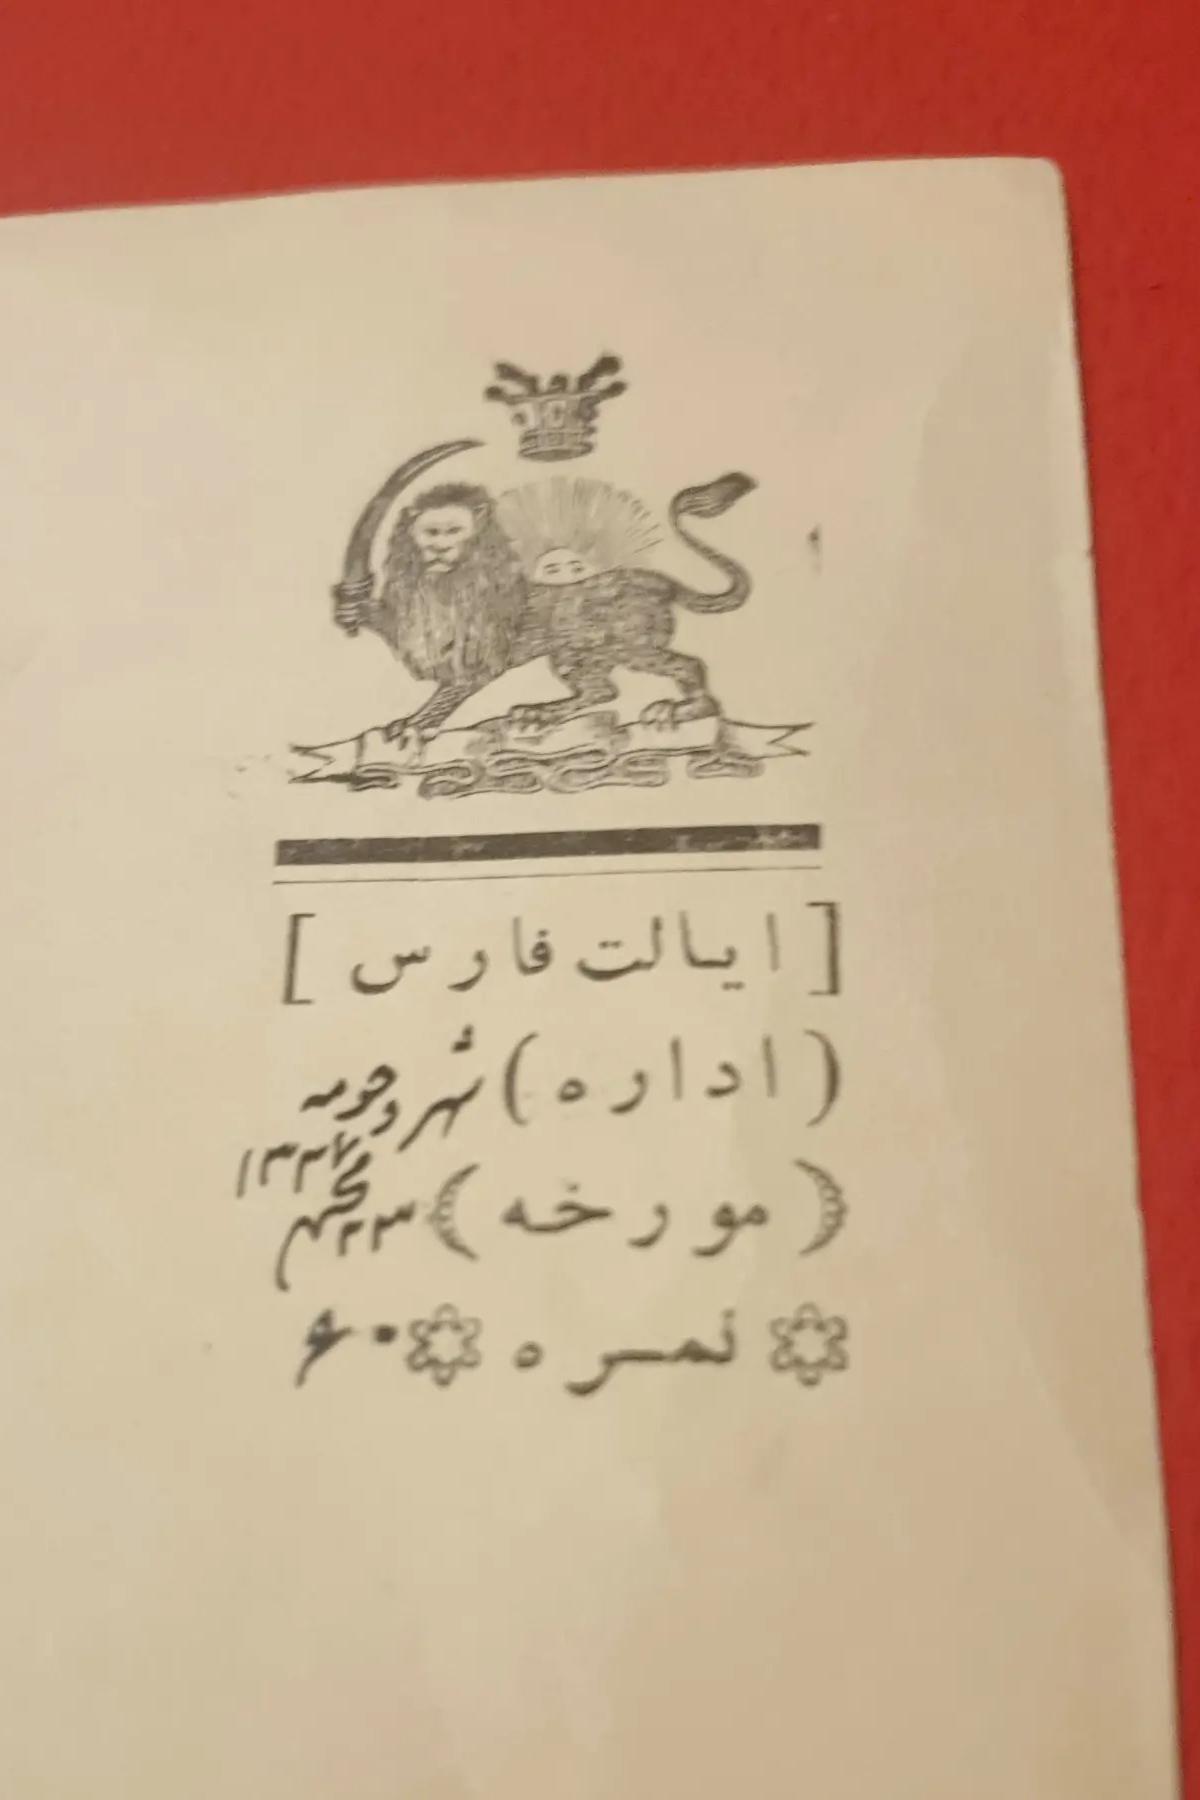 [ ایالت فارس ]
( اداره ) شهر و حومه
( مورخه ) ۲۳ محرم
۱۳۳۷
نمره ۶۰